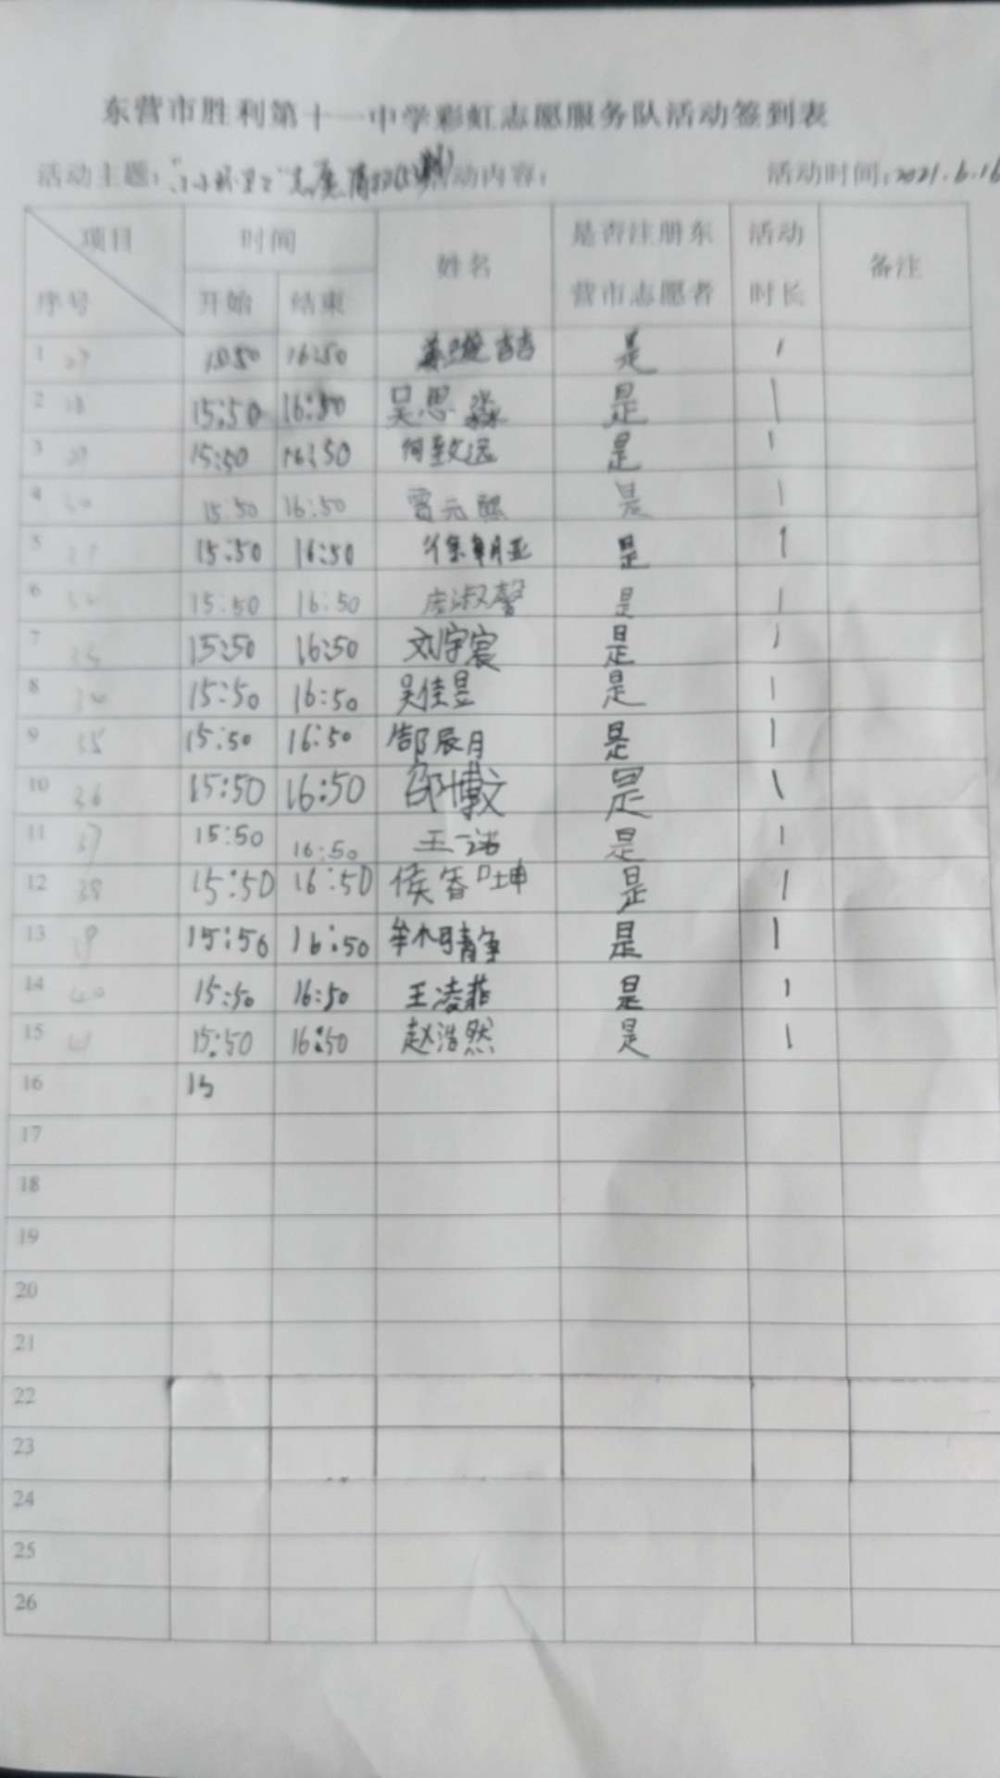 东营市胜利第十一中学彩虹志愿服务队活动签到表
活动主题: 活动内容: 活动时间:2021.6.16
项目 时间 姓名 是否注册东营市志愿者 活动时长 备注
序号 开始 结束
1 15:50 16:50 是 1
2 15:50 16:50 吴思淼 是 1
3 15:50 16:50 何致远 是 1
4 30 15:50 16:50 贾元熙 是 1
5 15:50 16:50 是 1
6 15:50 16:50 庞淑馨 是 1
7 15:50 16:50 刘宇宸 是 1
8 34 15:50 16:50 吴佳昱 是 1
9 35 15:50 16:50 郜辰月 是 1
10 36 15:50 16:50 邵博文 是 1
11 37 15:50 16:50 王一诺 是 1
12 38 15:50 16:50 侯睿坤 是 1
13 39 15:50 16:50 是 1
14 40 15:50 16:50 王凌菲 是 1
15 41 15:50 16:50 赵浩然 是 1
16 15
17
18
19
20
21
22
23
24
25
26